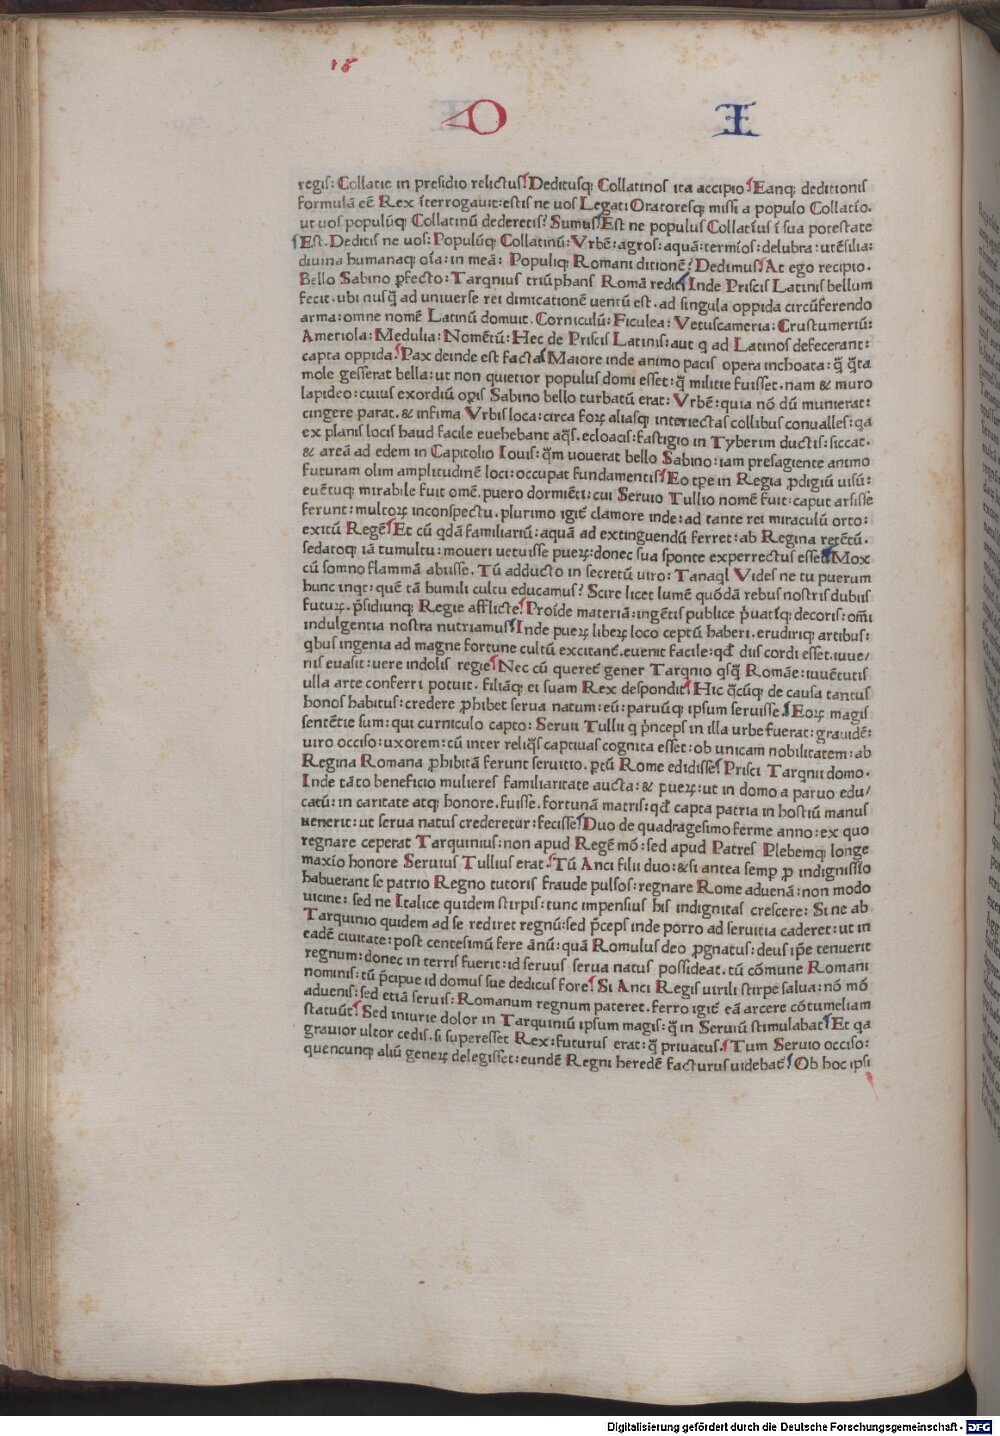 18
O I
regis: Collatie in presidio relictus. Deditusq; Collatinos ita accipio. Eanq; deditionis
formulā eē Rex īterrogauit: estis ne uos Legati Oratoresq; missi a populo Collatīo.
ut uos populūq; Collatinū dederetis? Sumus. Est ne populus Collatīus ī sua potestate
Est. Deditis ne uos: Populūq; Collatinū: Vrbē: agros: aquā: termīos: delubra: utēsilia:
diuina humanaq; oīa: in meā: Populiq; Romani ditionē? Dedimus. At ego recipio.
Bello Sabino ꝑfecto: Tarqnius triūphans Romā redit. Inde Priscis Latinis bellum
fecit. ubi nusq̄ ad uniuerse rei dimicationē uentū est. ad singula oppida circūferendo
arma: omne nomē Latinū domuit. Corniculū: Ficulea: Vetuscameria: Crustumeriū:
Ameriola: Medulia: Nomētū: Hec de Priscis Latinis: aut q ad Latinos defecerant:
capta oppida. Pax deinde est facta. Maiore inde animo pacis opera inchoata: q̄ q̄ta
mole gesserat bella: ut non quietior populus domi esset: q̄ militie fuisset. nam & muro
lapideo: cuius exordiū opis Sabino bello turbatū erat: Vrbē: quia nō dū munierat:
cingere parat. & infima Vrbis loca: circa forꝝ aliasq; interiectas collibus conualles: qa
ex planis locis haud facile euehebant aq̄s. ecloacis: fastigio in Tyberim ductis: siccat.
& areā ad edem in Capitolio Iouis: q̄m uouerat bello Sabino: iam presagiente animo
futuram olim amplitudinē loci: occupat fundamentis. Eo tꝑe in Regia ꝓdigiū uisū:
euētuq; mirabile fuit omē. puero dormiēti: cui Seruio Tullio nomē fuit: caput arsisse
ferunt: multorꝝ inconspectu. plurimo igit̄ clamore inde: ad tante rei miraculū orto:
exitū Regē. Et cū qdā familiariū: aquā ad extinguendū ferret: ab Regina retētū.
sedatoq; iā tumultu: moueri uetuisse puerꝝ: donec sua sponte experrectus esset. Mox
cū somno flammā abiisse. Tū adducto in secretū uiro: Tanaql Vides ne tu puerum
hunc inqt: quē tā humili cultu educamus? Scire licet lumē quōdā rebus nostris dubiis
futurꝝ. p̄sidiunq; Regie afflicte. Proīde materiā: ingētis publice p̄uatīq; decoris: om̄i
indulgentia nostra nutriamus. Inde puerꝝ liberꝝ loco ceptū haberi. erudiriq; artibus:
qbus ingenia ad magne fortune cultū excitant̄. euenit facile: qđ diis cordi esset. iuue/
nis euasit: uere indolis regie. Nec cū queret̄ gener Tarqnio qsq̄ Romāe: iuuētutis
ulla arte conferri potuit. filiāq; ei suam Rex despondit. Hic q̄cūq; de causa tantus
honos habitus: credere ꝓhibet serua natum: eū: paruūq; ipsum seruisse. Eorꝝ magis
sentētie sum: qui curniculo capto: Seruii Tullii q p̄nceps in illa urbe fuerat: grauidē:
uiro occiso: uxorem: cū inter reliq̄s captiuas cognita esset: ob unicam nobilitatem: ab
Regina Romana ꝓhibitā ferunt seruitio. ꝑtū Rome edidisse. Prisci Tarqnii domo.
Inde tāto beneficio mulieres familiaritate aucta: & puerꝝ: ut in domo a paruo edu/
catū: in caritate atq; honore. fuisse. fortunā matris: qđ capta patria in hostiū manus
uenerit: ut serua natus crederetur: fecisse. Duo de quadragesimo ferme anno: ex quo
regnare ceperat Tarquinius: non apud Regē mō: sed apud Patres Plebemq; longe
maxīo honore Seruius Tullius erat. Tū Anci filii duo: & si antea semꝑ ꝓ indignissīo
habuerant se patrio Regno tutoris fraude pulsos: regnare Rome aduenā: non modo
uicine: sed ne Italice quidem stirpis: tunc impensius his indignitas crescere: Si ne ab
Tarquinio quidem ad se rediret regnū: sed p̄ceps inde porro ad seruitia caderet: ut in
eadē ciuitate: post centesimū fere ānū: quā Romulus deo ꝓgnatus: deus ip̄e tenuerit
regnum: donec in terris fuerit: id seruus serua natus possideat. tū cōmune Romani
nominis: tū p̄cipue id domus sue dedicus fore. Si Anci Regis uirili stirpe salua: nō mō
aduenis: sed etiā seruis: Romanum regnum pateret. ferro igit̄ eā arcere cōtumeliam
statuūt. Sed iniurie dolor in Tarquiniū ipsum magis: q̄ in Seruiū stimulabat. Et qa
grauior ultor cedis. si superesset Rex: futurus erat: q̄ priuatus. Tum Seruio occiso:
quencunq; aliū generꝝ delegisset: eundē Regni heredē facturus uidebat̄. Ob hoc ipsi
Digitalisierung gefördert durch die Deutsche Forschungsgemeinschaft - DFG